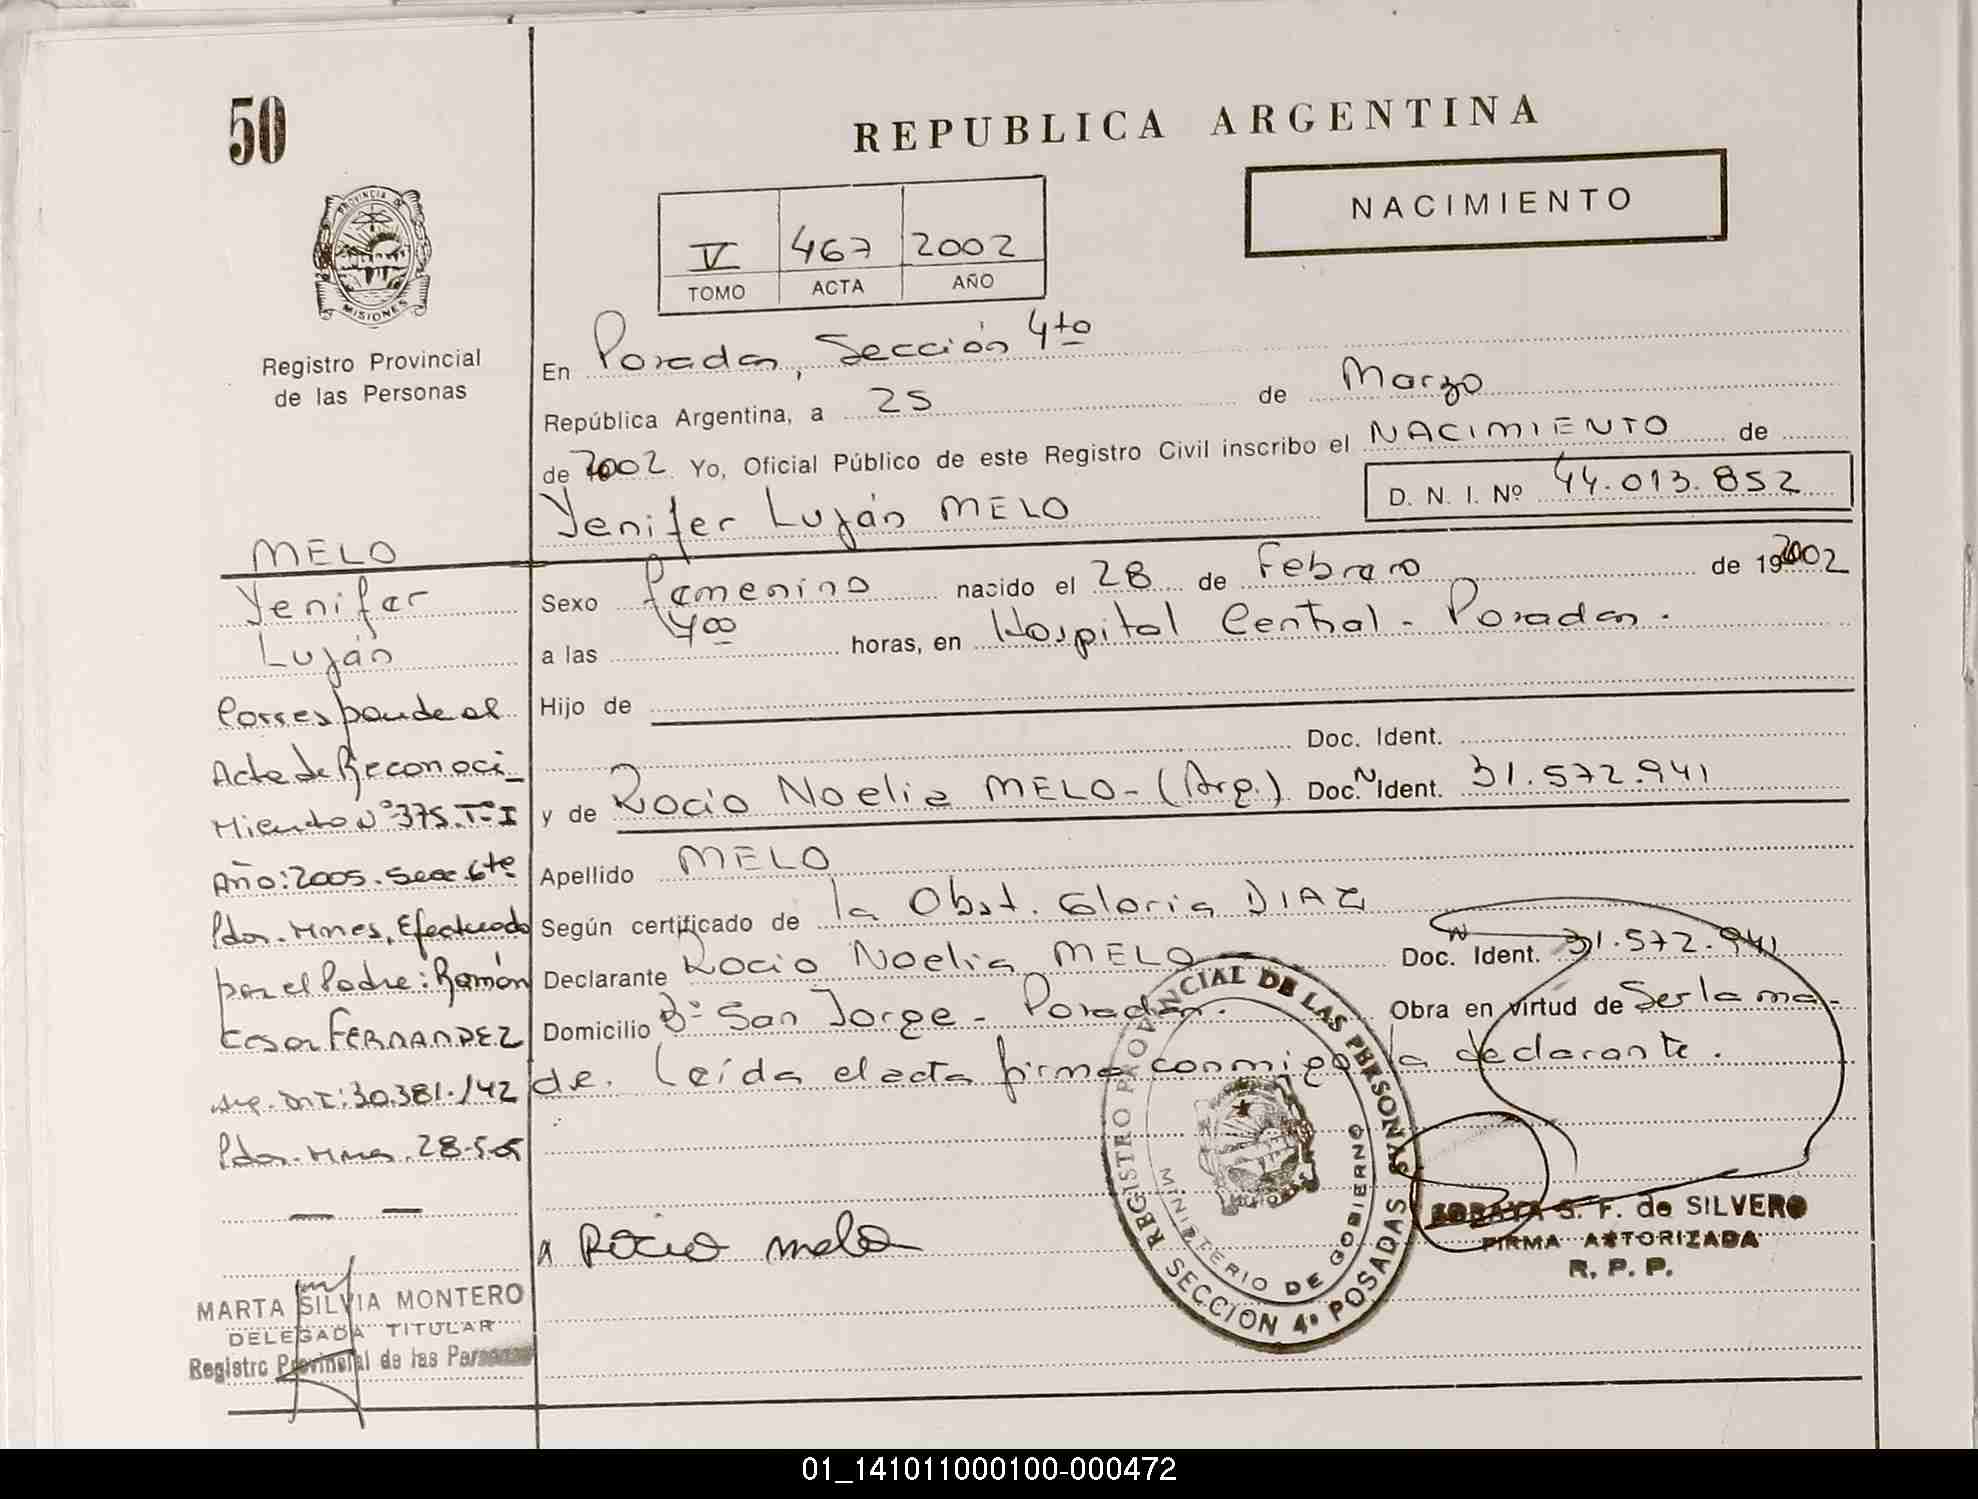 50
REPUBLICA ARGENTINA
NACIMIENTO
PROVINCIA DE
MISIONES
V 467 2002
TOMO ACTA AÑO
Registro Provincial
de las Personas
En Posadas, Sección 4ta
República Argentina, a 25 de Marzo
de 2002 Yo, Oficial Público de este Registro Civil inscribo el NACIMIENTO de
D. N. I. Nº 44.013.852
Yenifer Luján MELO
Sexo femenino nacido el 28 de Febrero de 192002
a las 400 horas, en Hospital Central - Posadas.
Hijo de
Doc. Ident.
y de Rocio Noelia MELO - (Arg.) Doc. N Ident. 31.572.941
Apellido MELO
Según certificado de la Obst. Gloria DIAZ
Declarante Rocio Noelia MELO Doc. N Ident. 31.572.941
Domicilio Bº San Jorge - Posadas. Obra en virtud de Ser la ma-
de. Leída el acta firma conmigo la declarante.
Rocio melo
MELO
Yenifer
Luján
Corresponde al
Acta de Reconoci-
miento Nº 375. Tº I
Año: 2005. Secc. 6ta
Pdas. Mnes. Efectuado
por el Padre: Ramón
Cesar FERNANDEZ
Arg. DNI: 30.381.142
Pdas. Mnes. 28-5-05
MARTA SILVIA MONTERO
DELEGADA TITULAR
Registro Provincial de las Personas
REGISTRO PROVINCIAL DE LAS PERSONAS
SECCION 4ª POSADAS
MINISTERIO DE GOBIERNO
S. F. de SILVERO
FIRMA AUTORIZADA
R. P. P.
01_141011000100-000472